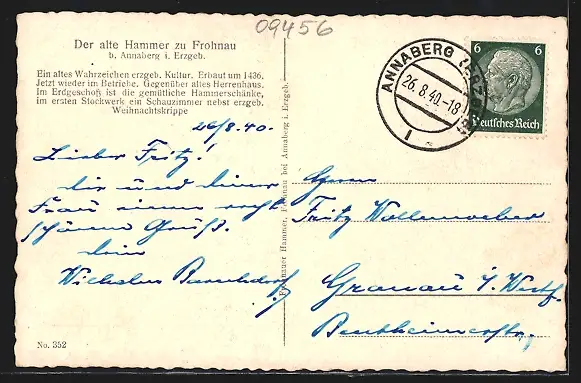 09456
Der alte Hammer zu Frohnau
b. Annaberg i. Erzgeb.
Ein altes Wahrzeichen erzgeb. Kultur. Erbaut um 1436.
Jetzt wieder im Betriebe. Gegenüber altes Herrenhaus.
Im Erdgeschoß ist die gemütliche Hammerschänke,
im ersten Stockwerk ein Schauzimmer nebst erzgeb.
Weihnachtskrippe
26/8.40.
Lieber Fritz!
dir und deiner
Frau einen recht
schönen Gruß.
dein
No. 352
Frohnauer Hammer, Frohnau bei Annaberg i. Erzgeb.
ANNABERG (ERZGEB)
26.8.40.-18
6 6
Deutsches Reich
Herrn
Fritz Wollenweber
Gronau i/Westf.
Bentheimerstr.